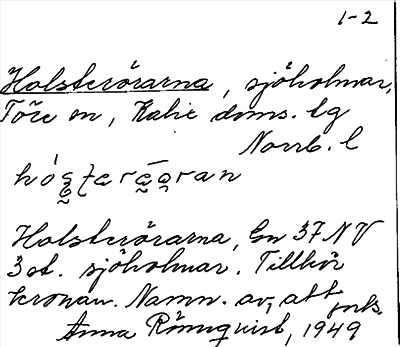 1-2
Holsterörarna, sjöholmar,
Töre sn, Kalix doms. lg
Norrb. l
Holsterörarna, Gn 37 NV
3 st. sjöholmar. Tillhör
kronan. Namn. av, att
Anna Rönnquist, 1949